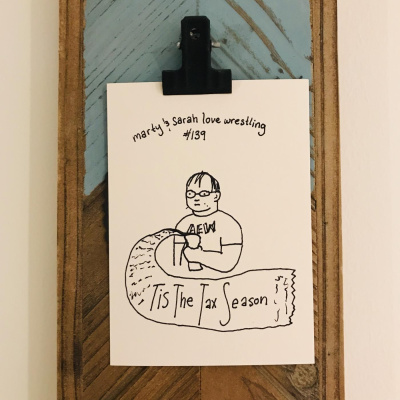 marty & sarah love wrestling
#139
AEW
Tis The Tax Season